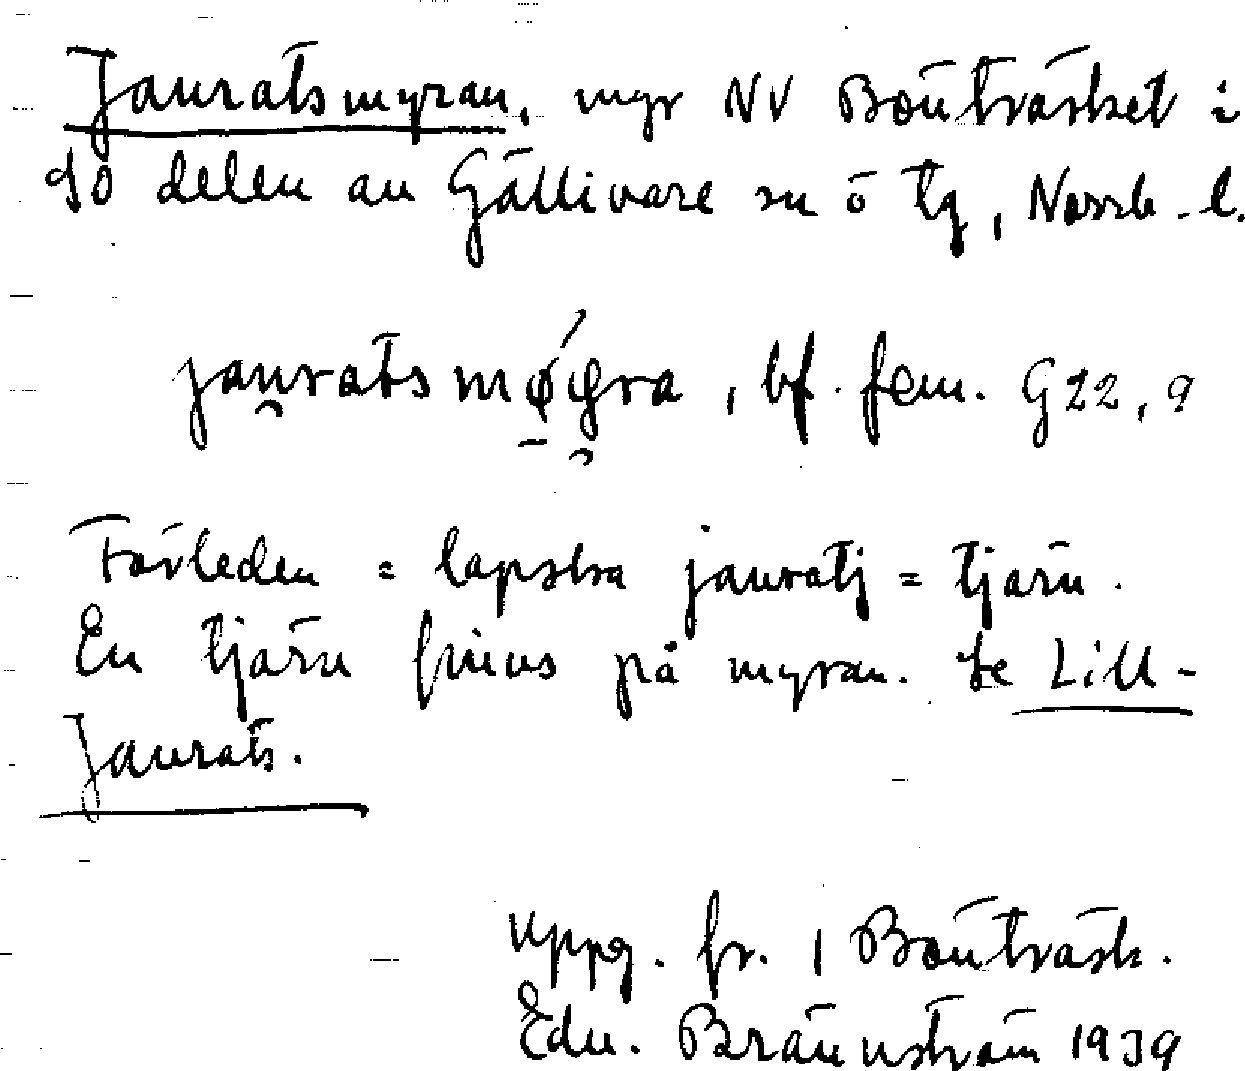 Jauratsmyran, myr NV Bönträsket i
SÖ delen av Gällivare sn ö tg, Norrb. l.
jau̯ratsmǿgra, bf. fem. G 22, 9
Förleden = lapska jauratj = tjärn.
En tjärn finns på myran. Se Lill-
Jaurats.
Uppg. fr. 1 Bönträsk.
Edv. Brännström 1939